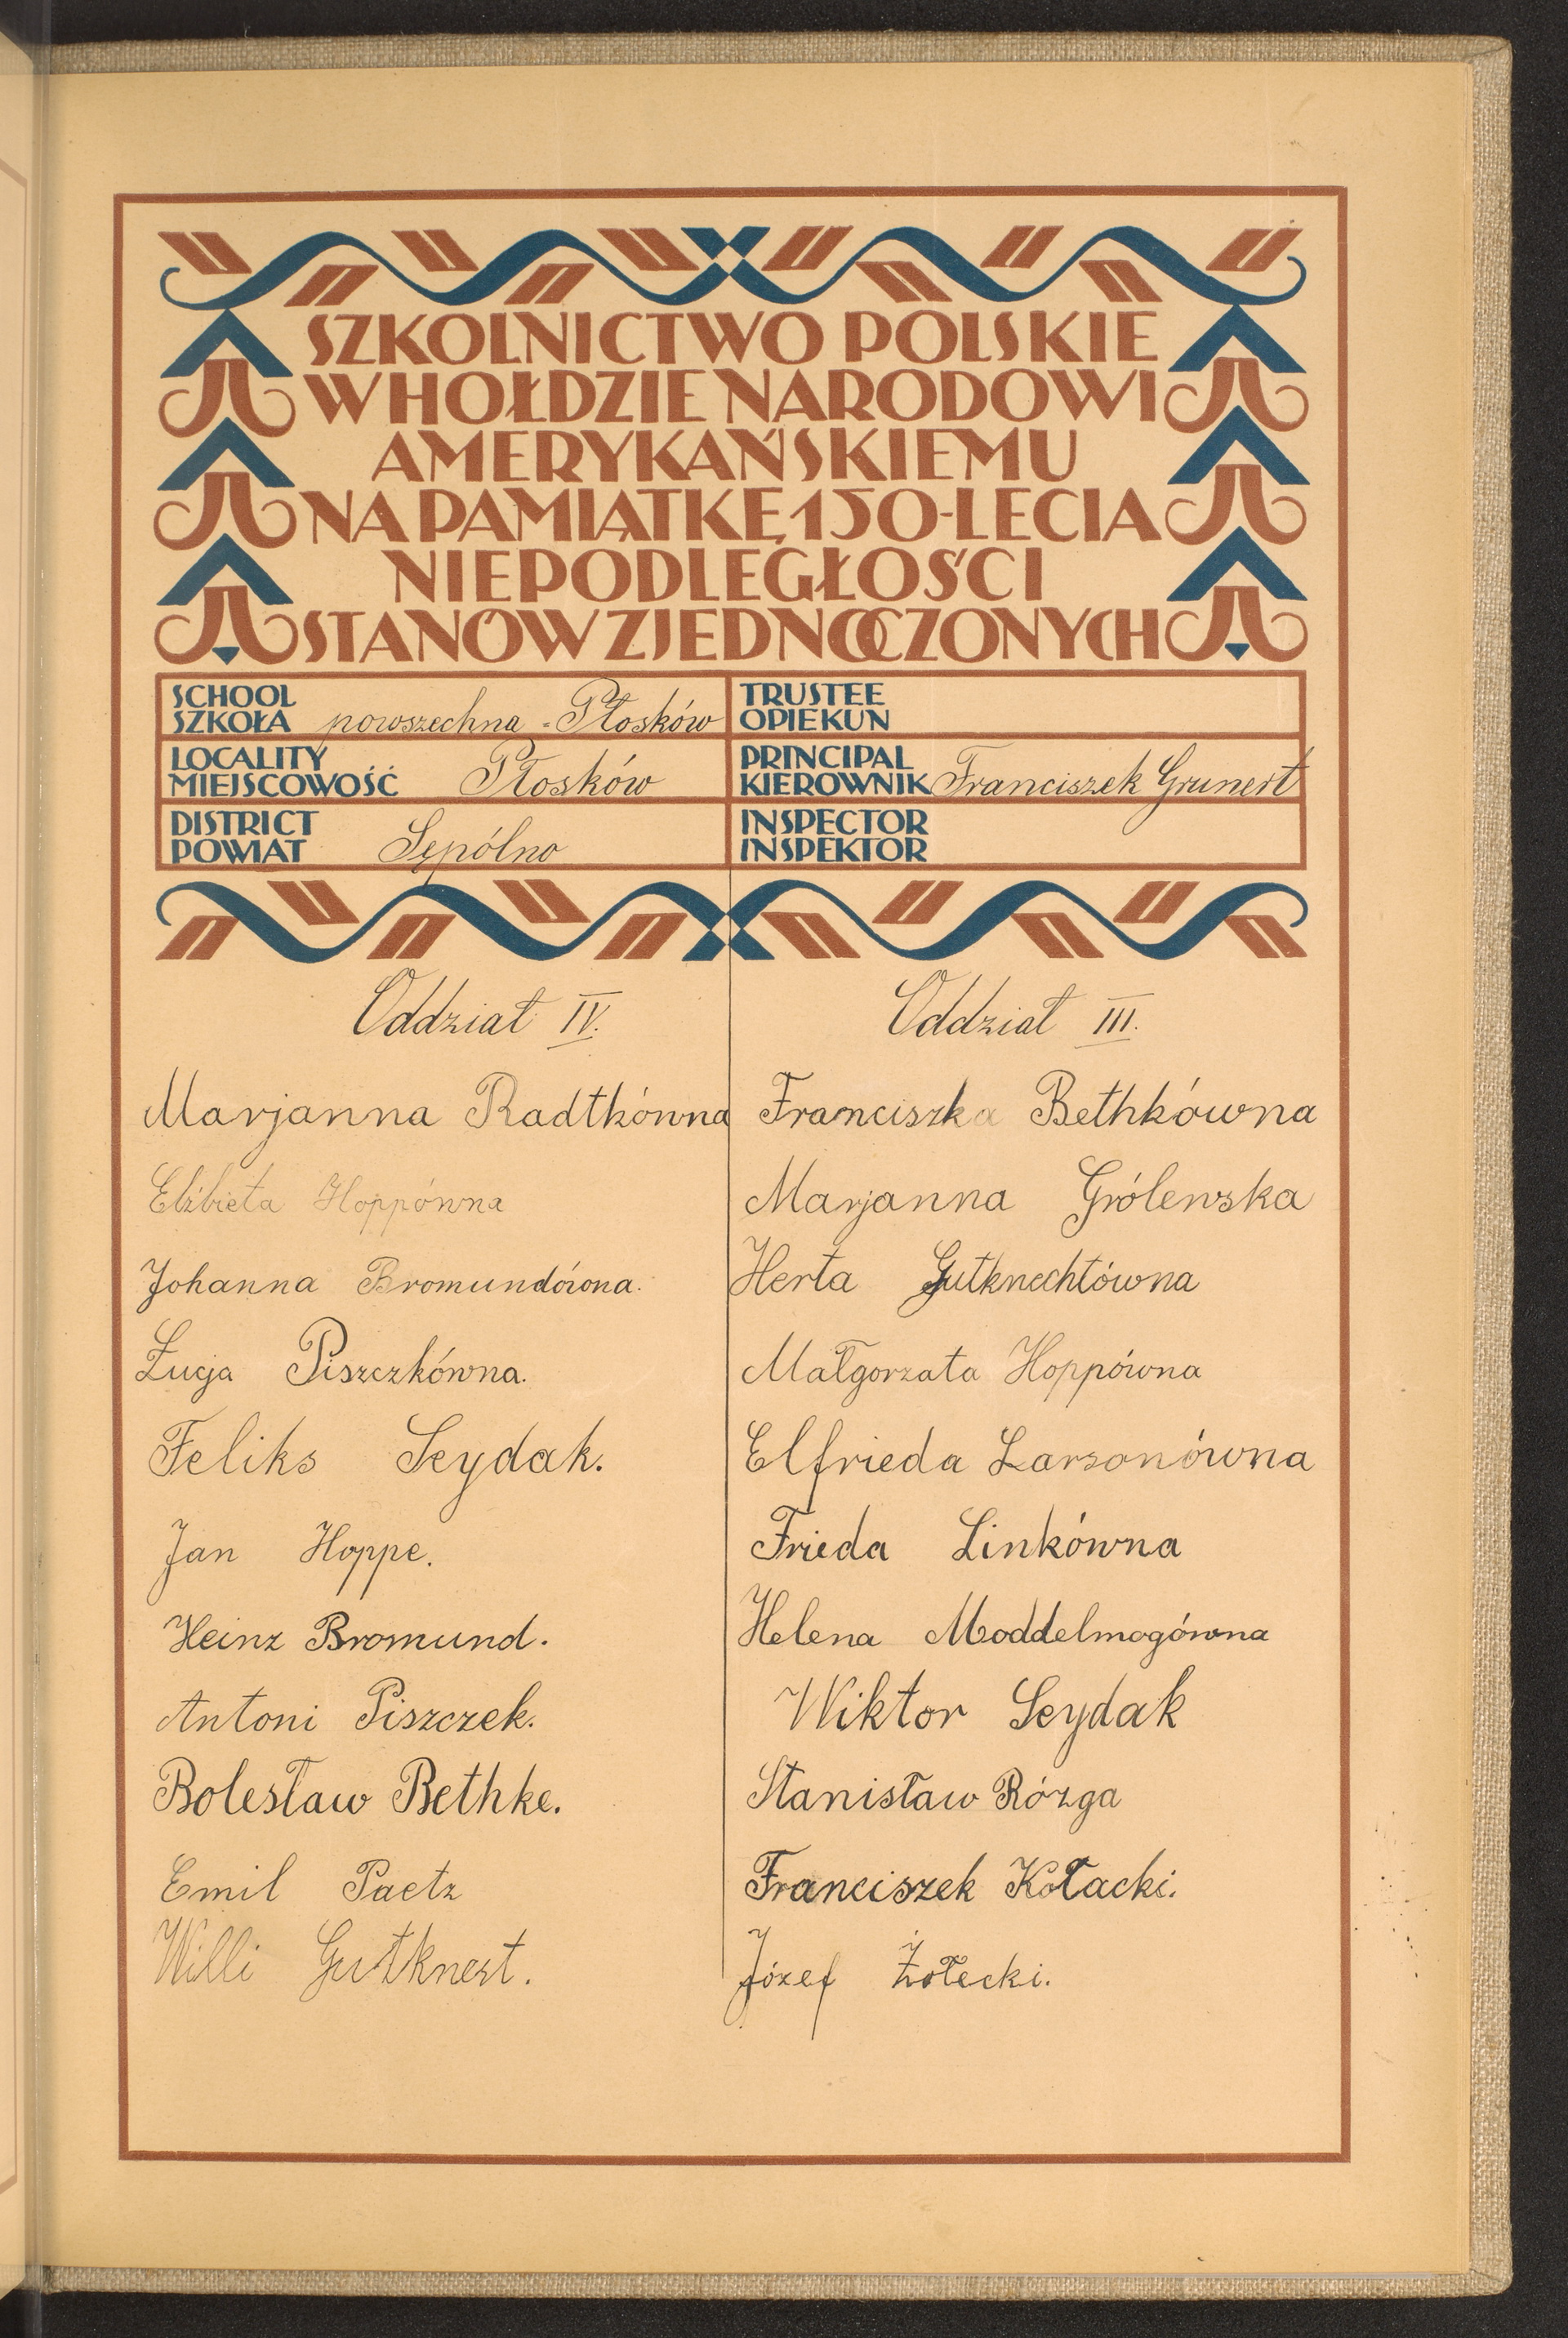 SZKOLNICTWO POLSKIE
W HOŁDZIE NARODOWI
AMERYKAŃSKIEMU
NA PAMIĄTKĘ 150-LECIA
NIEPODLEGŁOŚCI
STANÓW ZJEDNOCZONYCH
SCHOOL
SZKOŁA powszechna - Płosków
LOCALITY
MIEJSCOWOŚĆ Płosków
DISTRICT
POWIAT Sępólno
TRUSTEE
OPIEKUN
PRINCIPAL
KIEROWNIK Franciszek Grunert
INSPECTOR
INSPEKTOR
Oddział IV.
Marjanna Radtkówna
Elżbieta Hoppówna
Johanna Bromundówna.
Łucja Piszczkówna.
Feliks Seydak.
Jan Hoppe.
Heinz Bromund.
Antoni Piszczek.
Bolesław Bethke.
Emil Paetz
Willi Gutknest.
Oddział III.
Franciszka Bethkówna
Marjanna Grólewska
Herta Gutknechtówna
Małgorzata Hoppówna
Elfrieda Larsonówna
Frieda Linkówna
Helena Moddelmogówna
Wiktor Seydak
Stanisław Rózga
Franciszek Kołacki.
Józef Żołecki.